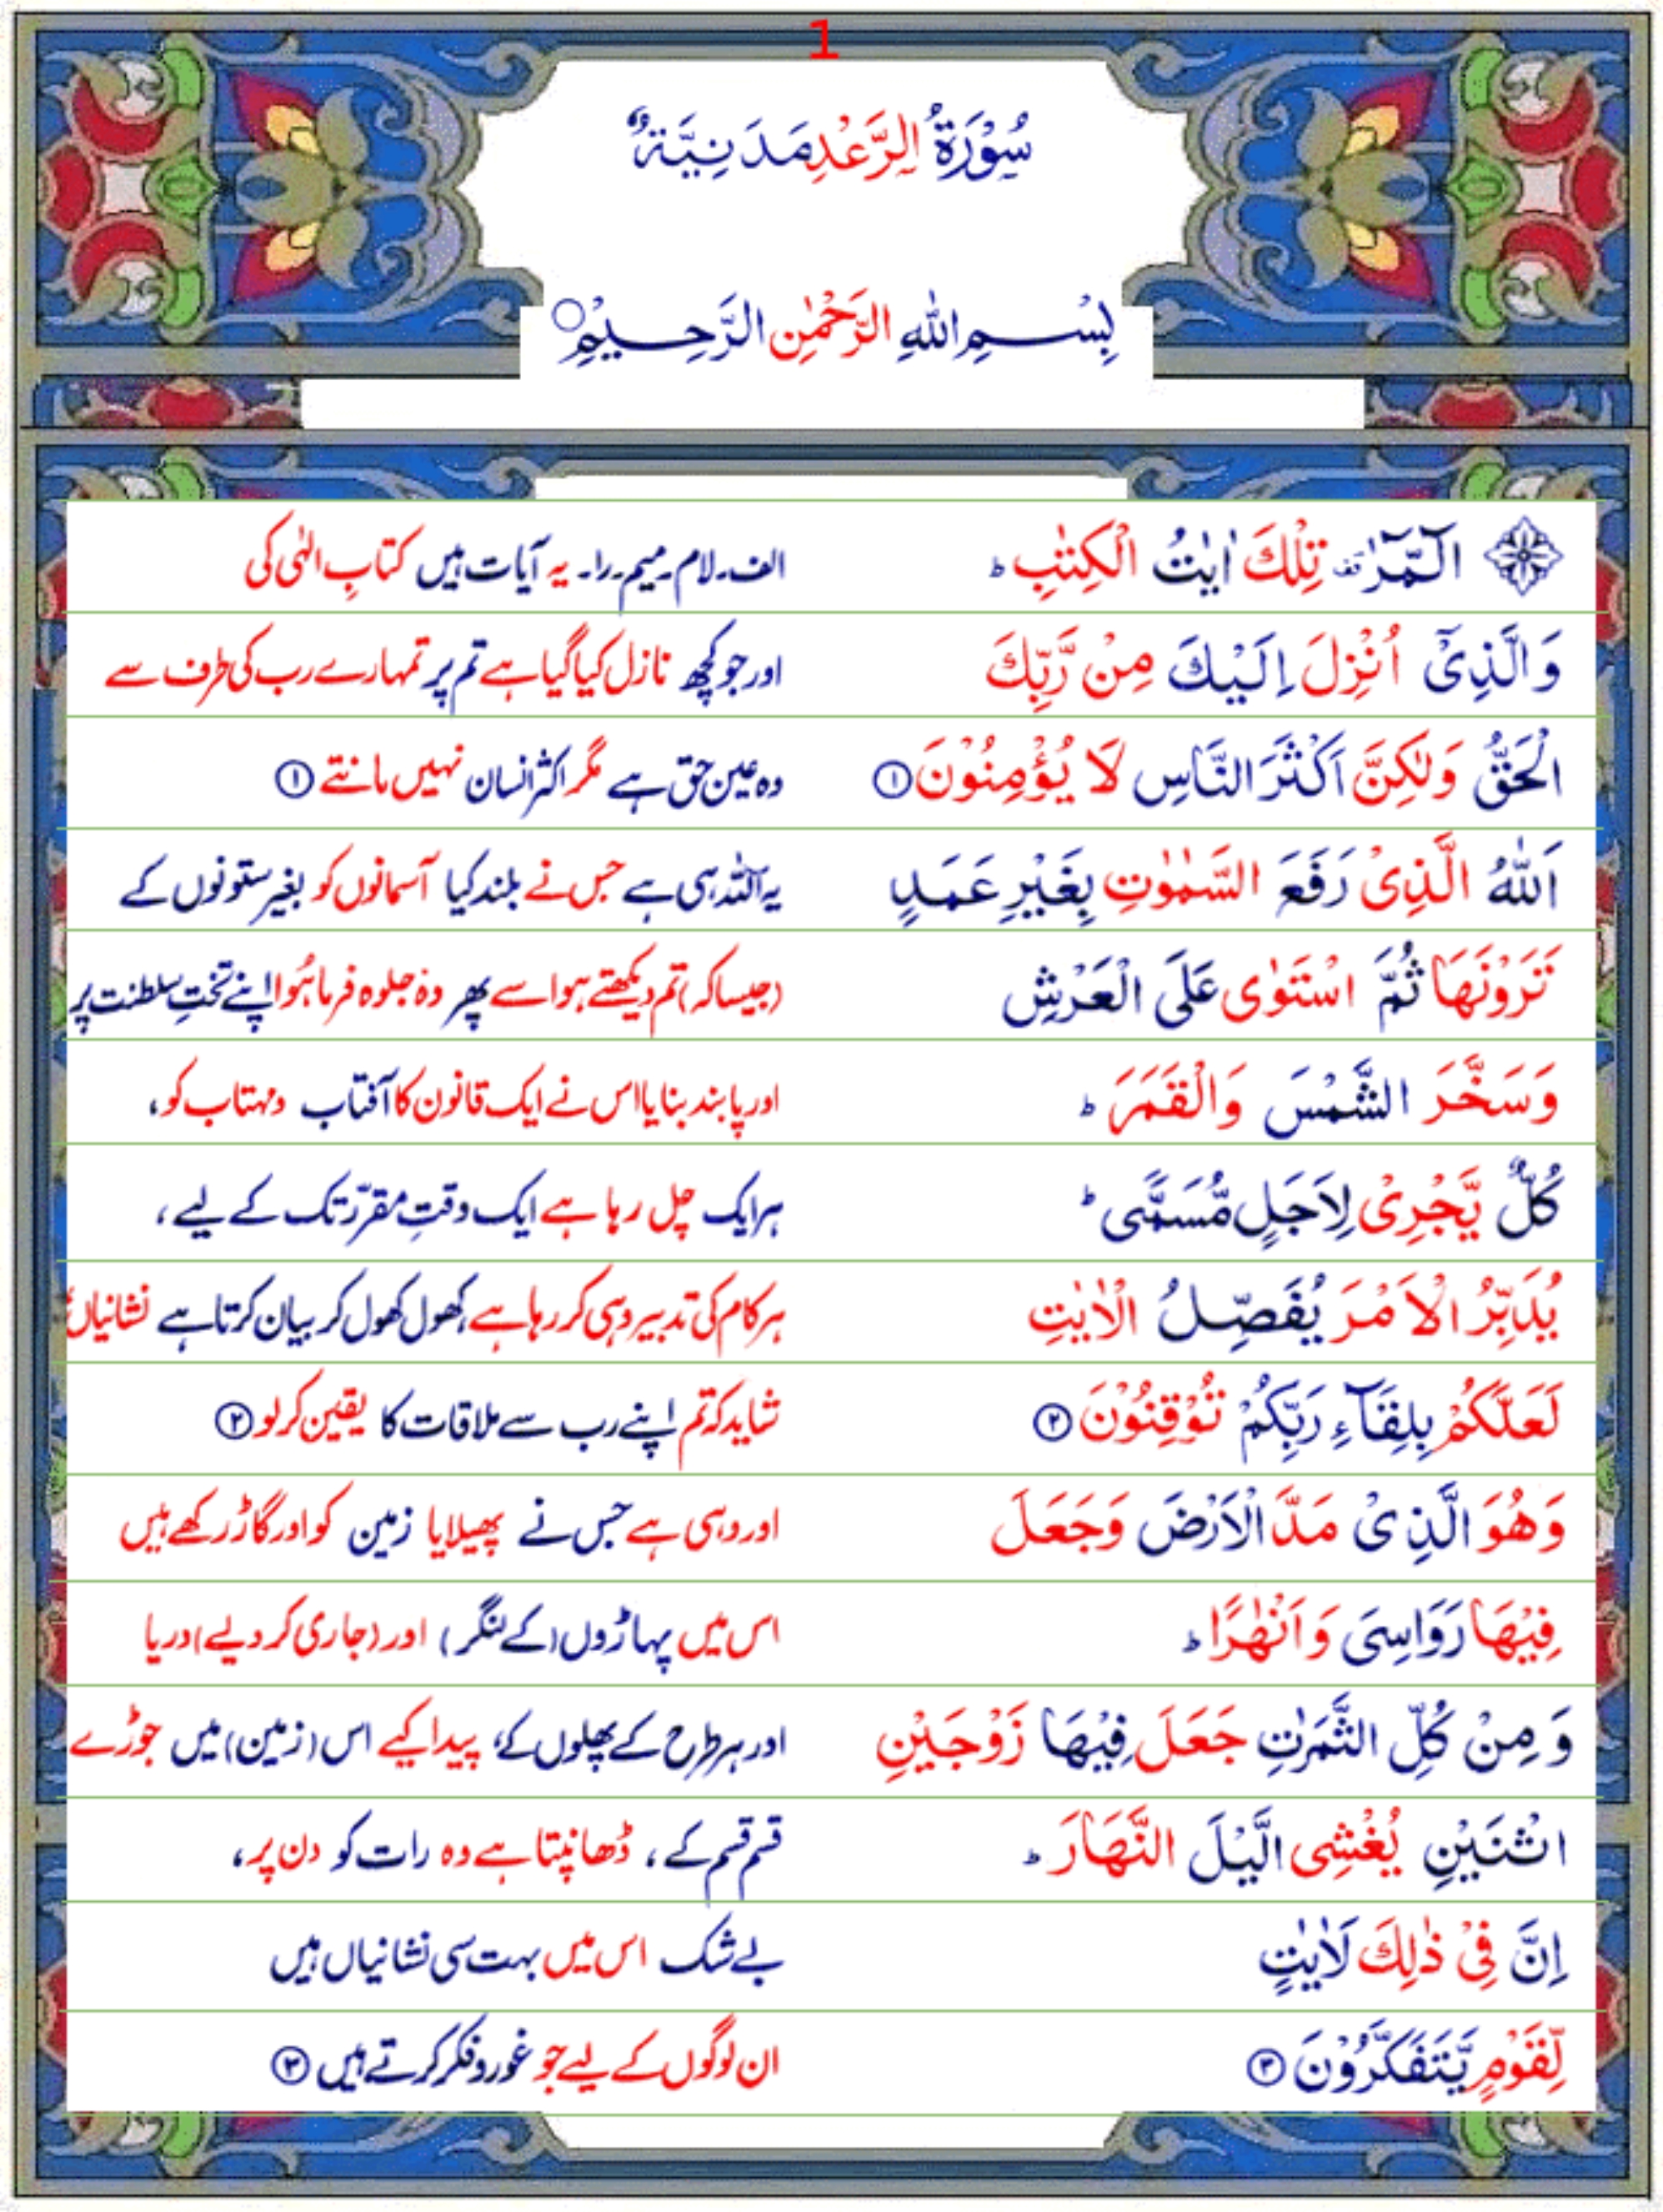 1
سُوْرَةُ الرَّعْدِ مَدَنِيَّةٌ
بِسْمِ اللّٰهِ الرَّحْمٰنِ الرَّحِيْمِ○
الٓمّٓرٰ ۫ قف تِلْكَ اٰيٰتُ الْكِتٰبِ ؕ الف۔لام۔میم۔را۔ یہ آیات ہیں کتابِ الٰہی کی
وَالَّذِیْۤ اُنْزِلَ اِلَیْكَ مِنْ رَّبِّكَ اور جو کچھ نازل کیا گیا ہے تم پر تمہارے رب کی طرف سے
الْحَقُّ وَلٰكِنَّ اَكْثَرَ النَّاسِ لَا يُؤْمِنُوْنَ ① وہ عین حق ہے مگر اکثر انسان نہیں مانتے ①
اَللّٰهُ الَّذِیْ رَفَعَ السَّمٰوٰتِ بِغَيْرِ عَمَدٍ یہ اللہ ہی ہے جس نے بلند کیا آسمانوں کو بغیر ستونوں کے
تَرَوْنَهَا ثُمَّ اسْتَوٰى عَلَى الْعَرْشِ (جیسا کہ) تم دیکھتے ہو اسے پھر وہ جلوہ فرما ہُوا اپنے تختِ سلطنت پر
وَسَخَّرَ الشَّمْسَ وَالْقَمَرَ ؕ اور پابند بنایا اس نے ایک قانون کا آفتاب و مہتاب کو،
كُلٌّ يَّجْرِیْ لِاَجَلٍ مُّسَمًّى ؕ ہر ایک چل رہا ہے ایک وقتِ مقررّ تک کے لیے ،
يُدَبِّرُ الْاَمْرَ يُفَصِّلُ الْاٰيٰتِ ہر کام کی تدبیر وہی کر رہا ہے، کھول کھول کر بیان کرتا ہے نشانیاں،
لَعَلَّكُمْ بِلِقَآءِ رَبِّكُمْ تُوْقِنُوْنَ ② شاید کہ تم اپنے رب سے ملاقات کا یقین کرلو ②
وَهُوَ الَّذِیْ مَدَّ الْاَرْضَ وَجَعَلَ اور وہی ہے جس نے پھیلایا زمین کو اور گاڑ رکھے ہیں
فِيْهَا رَوَاسِیَ وَاَنْهٰرًا ؕ اس میں پہاڑوں (کے لنگر) اور (جاری کر دیے) دریا
وَمِنْ كُلِّ الثَّمَرٰتِ جَعَلَ فِيْهَا زَوْجَيْنِ اور ہر طرح کے پھلوں کے، پیدا کیے اس (زمین) میں جوڑے
اثْنَيْنِ يُغْشِی الَّيْلَ النَّهَارَ ؕ قسم قسم کے ، ڈھانپتا ہے وہ رات کو دن پر،
اِنَّ فِیْ ذٰلِكَ لَاٰيٰتٍ بے شک اس میں بہت سی نشانیاں ہیں
لِّقَوْمٍ يَّتَفَكَّرُوْنَ ③ ان لوگوں کے لیے جو غور و فکر کرتے ہیں ③